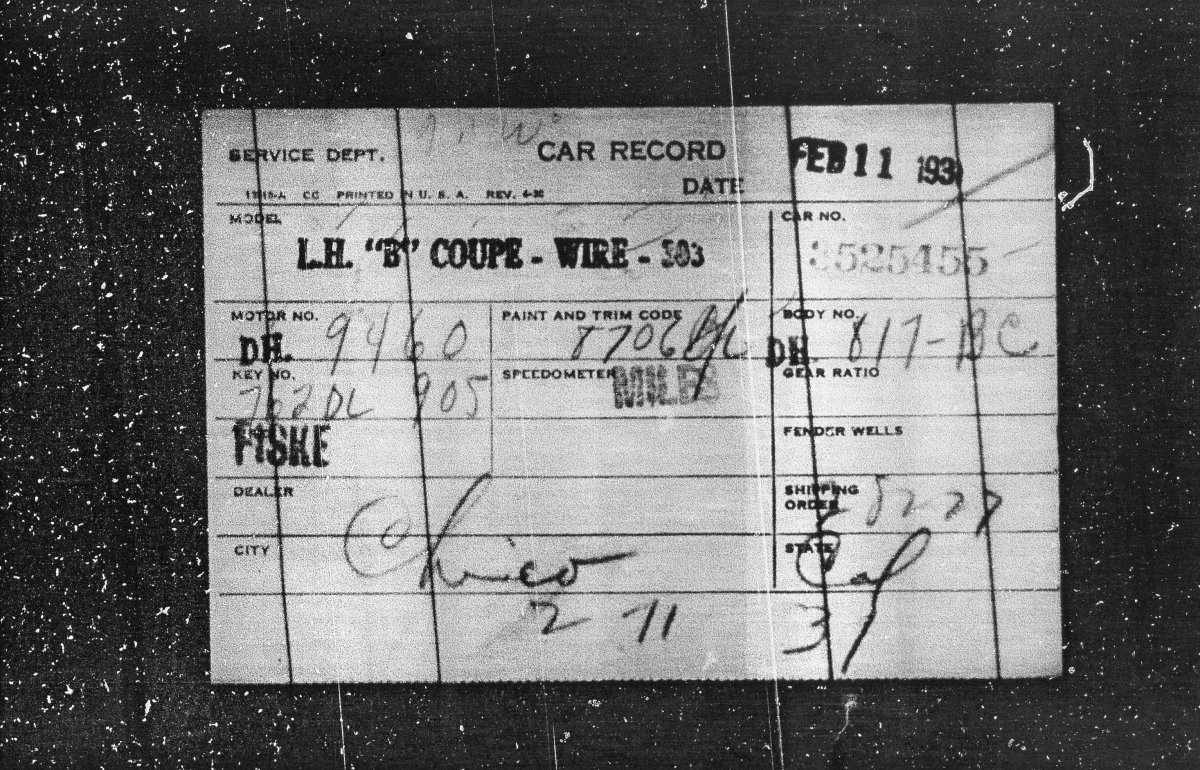 SERVICE DEPT. CAR RECORD FEB 11 193
CC PRINTED IN U. S. A. REV. DATE
MODEL CAR NO.
L.H. "B" COUPE - WIRE - 503 3525455
MOTOR NO. PAINT AND TRIM CODE BODY NO.
DH. 9460 8706 DH. 817-BC
KEY NO. SPEEDOMETER MILES GEAR RATIO
762DL 905
FISKE FENDER WELLS
DEALER SHIPPING
ORDER
CITY Chico STATE Cal
2 - 11 31